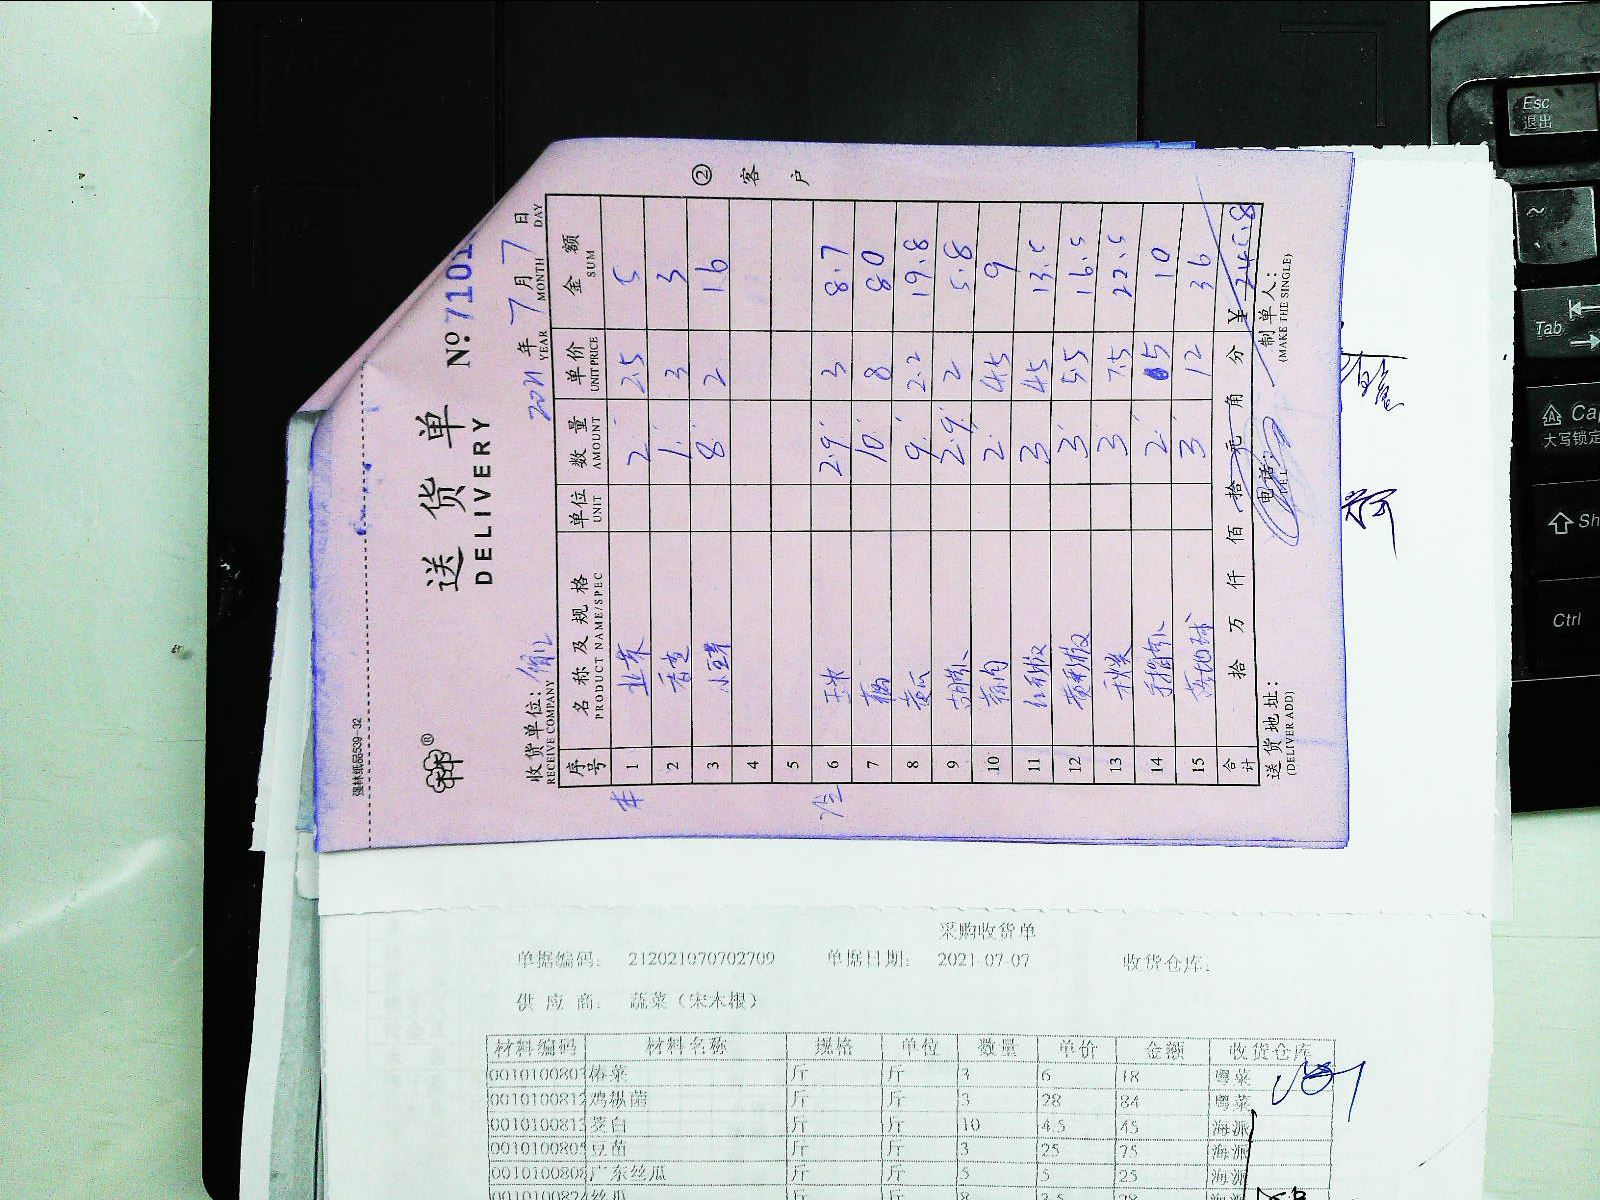 强林纸品539-32
送货单
DELIVERY
№ 7101
2021 年 7 月 7 日
YEAR MONTH DAY
收货单位:
RECEIVE COMPANY
序号 名称及规格 单位 数量 单价 金额
PRODUCT NAME/SPEC UNIT AMOUNT UNIT PRICE SUM
1 韭菜 2 2.5 5
2 香菜 1 3 3
3 小豆芽 8 2 16
4
5
6 玉米 2.9 3 8.7
7 藕 10 8 80
8 黄瓜 9 2.2 19.8
9 胡萝卜 2.9 2 5.8
10 2 4.5 9
11 红椒 3 4.5 13.5
12 黄椒 3 5.5 16.5
13 3 7.5 22.5
14 手指萝卜 2 5 10
15 3 12 36
合计 拾 万 仟 佰 拾 元 角 分 ¥ 245.8
送货地址: 电话: 制单人:
(DELIVER ADD) TEL (MAKE THE SINGLE)
② 客户
采购收货单
单据编码: 212021070702709 单据日期: 2021-07-07 收货仓库:
供应商: 蔬菜（宋木根）
材料编码 材料名称 规格 单位 数量 单价 金额 收货仓库
0010100803 椿菜 斤 斤 3 6 18 粤菜
0010100812 鸡枞菌 斤 斤 3 28 84 粤菜
0010100813 茭白 斤 斤 10 4.5 45 海派
0010100805 豆苗 斤 斤 3 25 75 海派
0010100808 广东丝瓜 斤 斤 5 5 25 海派
0010100824 丝瓜 斤 斤 8 3.5 28 海派
Esc
退出
~
Tab
Cap
大写锁定
Sh
Ctrl